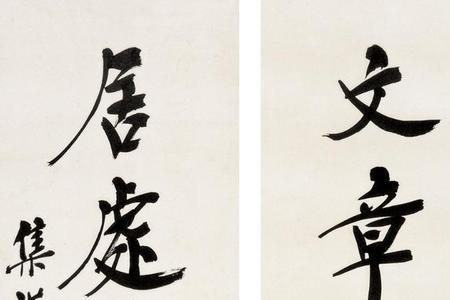 文章
居處
集